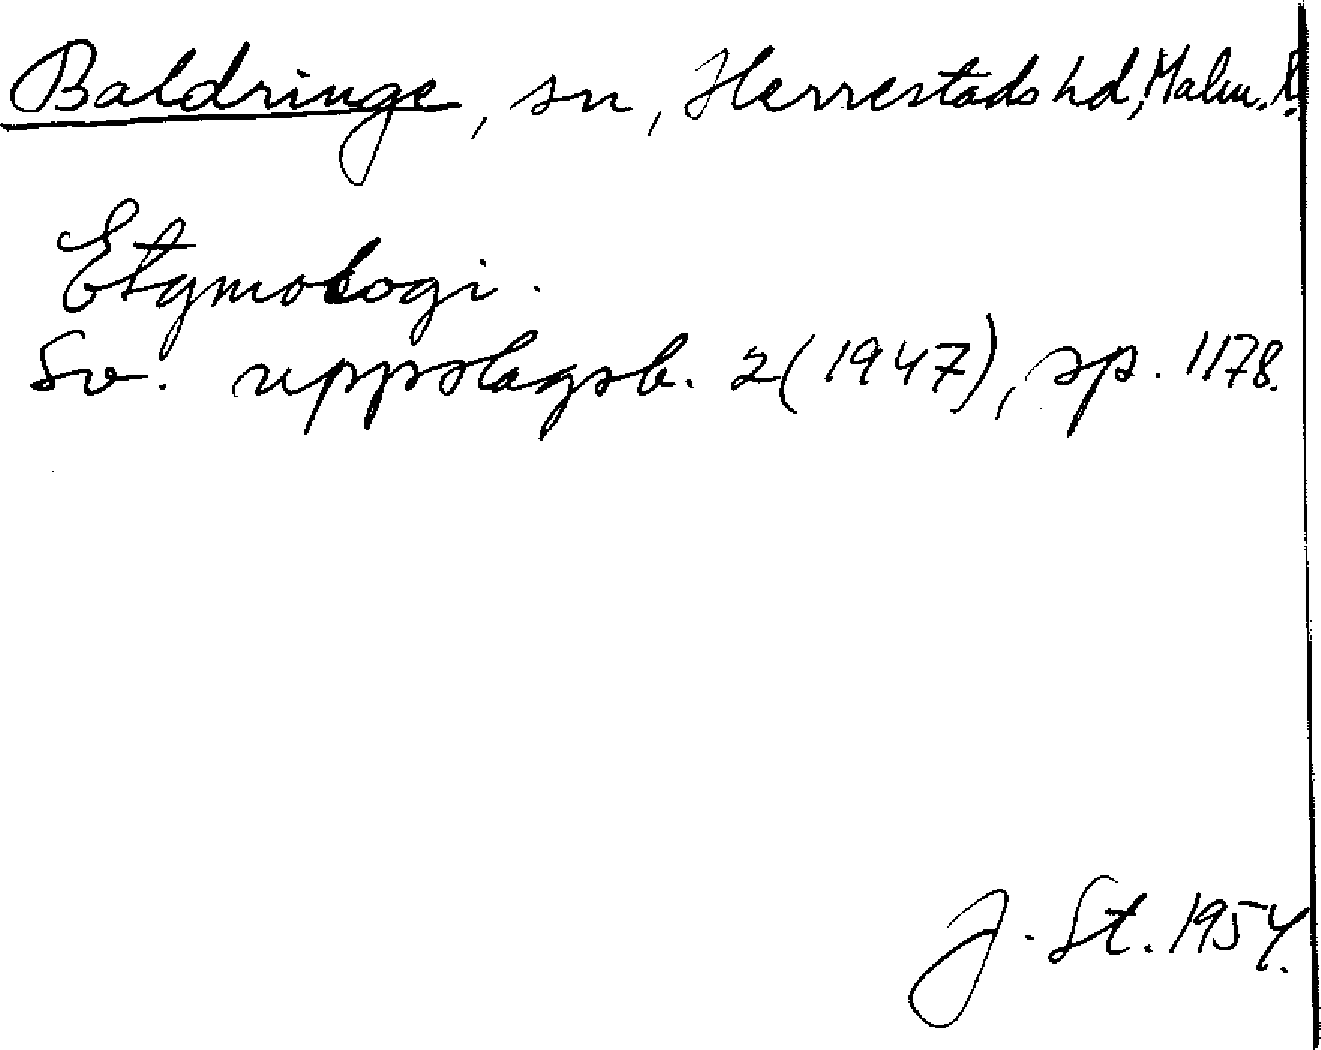 Baldringe, sn, Herrestads hd, Malm. l.
Etymologi.
Sv. uppslagsb. 2(1947), sp. 1178.
J. St. 1954.